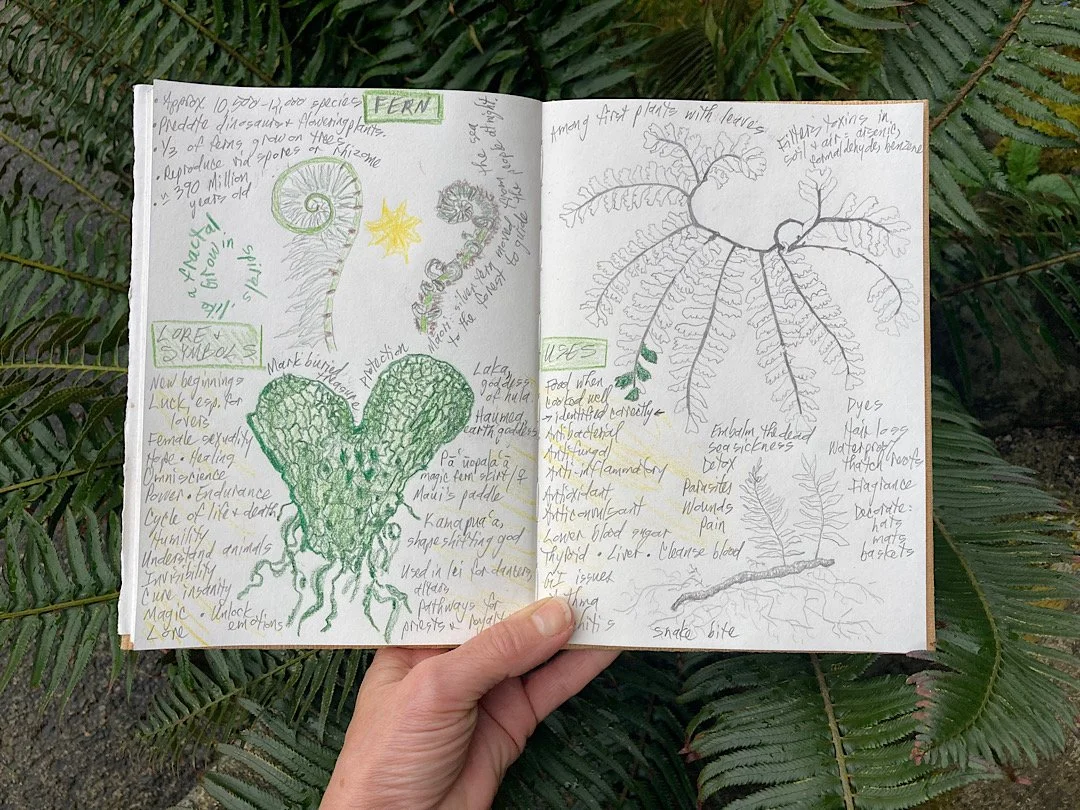 • Approx 10,500-12,000 species
• Predate dinosaurs + flowering plants.
• 1/3 of ferns grow on trees
• Reproduce via spores or rhizome
• ≈ 390 Million
years old
FERN
a fractal
Grow in
spirals
Maori: silver fern mirrored
to the
the sea
to guide the people at night.
LORE +
SYMBOLS
New beginnings
Luck, esp. for
lovers
Female sexuality
Hope • Healing
Omniscience
Power • Endurance
Cycle of life + death
Humility
Understand animals
Invisibility
Cure insanity
Magic • Unlock
Love emotions
Mark buried
treasure
protection
Laka,
goddess
of hula.
Haumea,
earth goddess
Pāʻūopalaʻā
magic fern skirt/
Maui's paddle
Kamapuaʻa,
shapeshifting god
Used in lei for dancers,
altars
pathways for
priests + royalty
Among first plants with leaves
Filters toxins in
soil + air = arsenic,
formaldehyde, benzene
USES
Food when
cooked well
→ identified correctly ←
Antibacterial
Antifungal
Anti-inflammatory
Antioxidant
Anticonvulsant
Lower blood sugar
Thyroid • Liver • Cleanse blood
GI issues
Embalm the dead
seasickness
Detox
Parasites
Wounds
Pain
Dyes
Hair loss
Waterproof
thatch roofs
Fragrance
Decorate:
hats
mats
baskets
snake bite